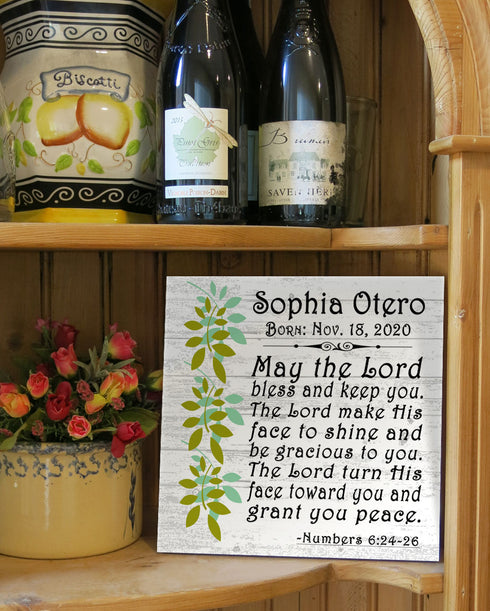 Biscotti
2015
Pinot Gris
SAVEN
Sophia Otero
BORN: NOV. 18, 2020
May the Lord
bless and keep you.
The Lord make His
face to shine and
be gracious to you.
The Lord turn His
face toward you and
grant you peace.
-Numbers 6:24-26